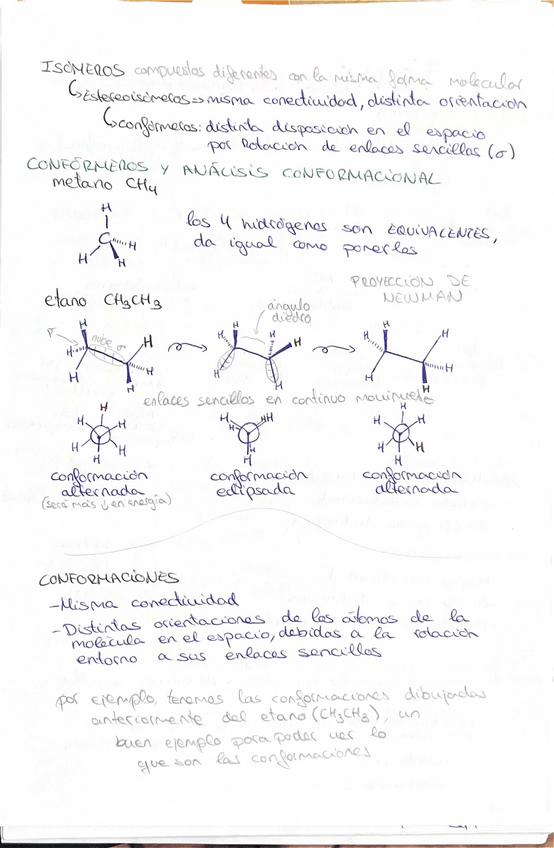 ISÓMEROS compuestos diferentes con la misma forma molecular
↳Estereoisómeros⇒ misma conectividad, distinta orientación
↳confórmeros: distinta disposición en el espacio
por Rotación de enlaces sencillos (σ)
CONFÓRMEROS Y ANÁLISIS CONFORMACIONAL
metano CH4
H
C H
H H
los 4 hidrógenos son EQUIVALENTES,
da igual como ponerlos
PROYECCIÓN DE
NEWMAN
etano CH3CH3
ángulo
diedro
H H H
H nube σ H H H H H
H H H H H
H H H
enlaces sencillos en continuo movimiento
H H H
H H H H H H
H H H H H H
H H H
conformación conformación conformación
alternada eclipsada alternada
(será más ↓ en energía)
CONFORMACIONES
-Misma conectividad
-Distintas orientaciones de los átomos de la
molécula en el espacio, debidas a la rotación
entorno a sus enlaces sencillos
por ejemplo, tenemos las conformaciones dibujadas
anteriormente del etano (CH3CH3), un
buen ejemplo para poder ver lo
que son las conformaciones